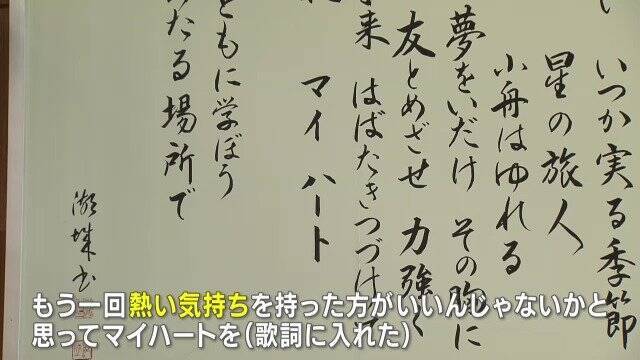 いつか実る季節
星の旅人
小舟はゆれる
夢をいだけ その胸に
友とめざせ 力強く
来 はばたきつづけて
マイ ハート
ともに学ぼう
たる場所で
もう一回熱い気持ちを持った方がいいんじゃないかと
思ってマイハートを(歌詞に入れた)